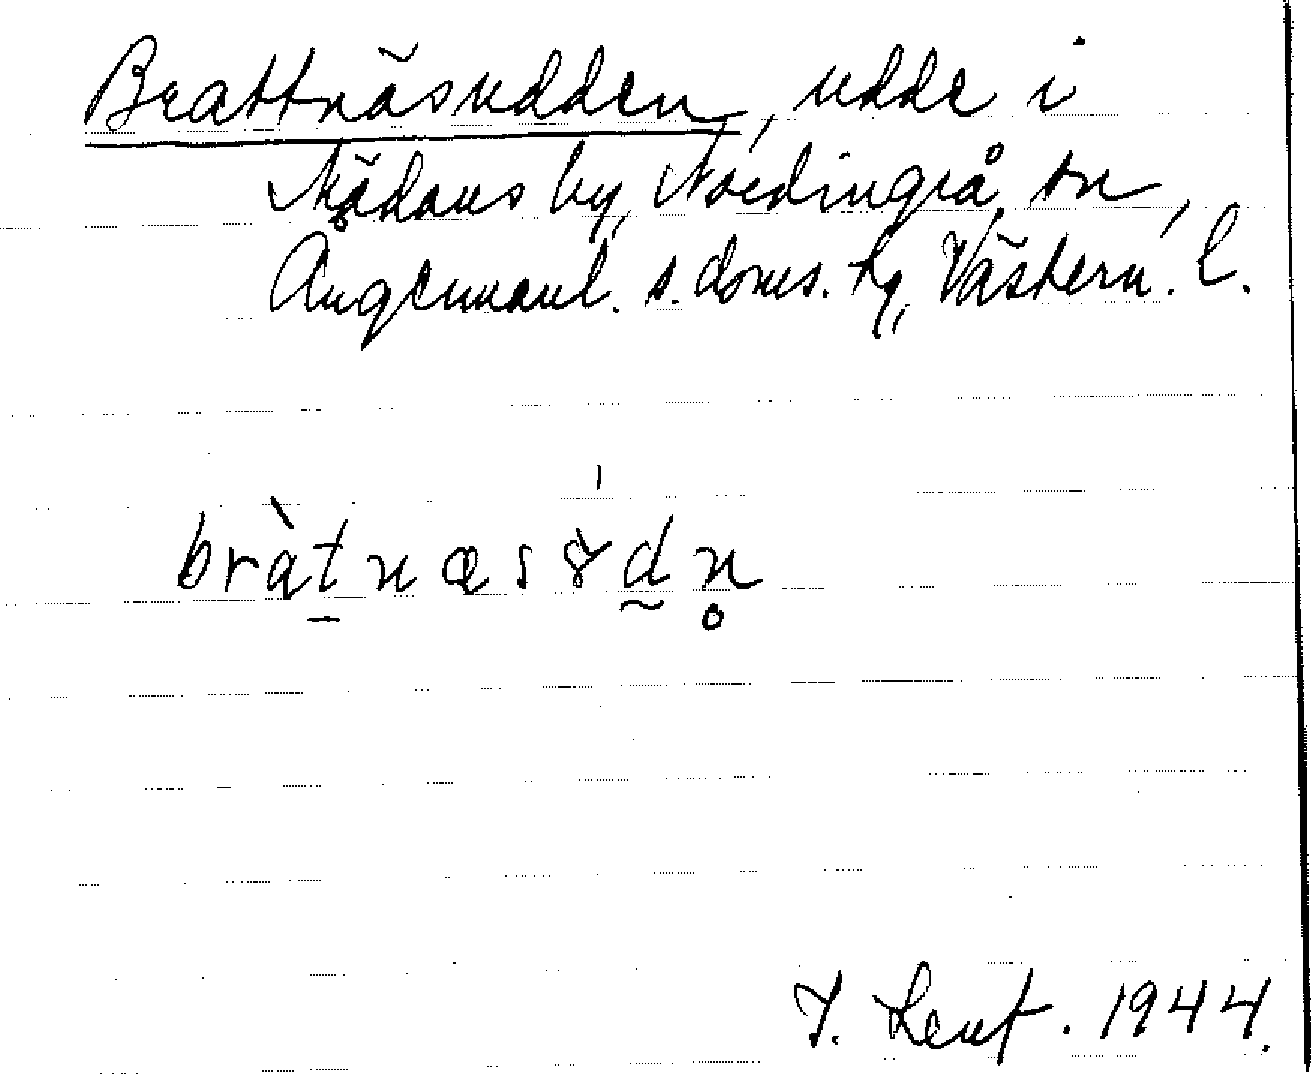 Brattnäsudden, udde i
Mädans by, Nordingrå sn,
Ångermanl. s. doms. hg, Västern. l.
bràtnæsɤ̀dn̥
1944.